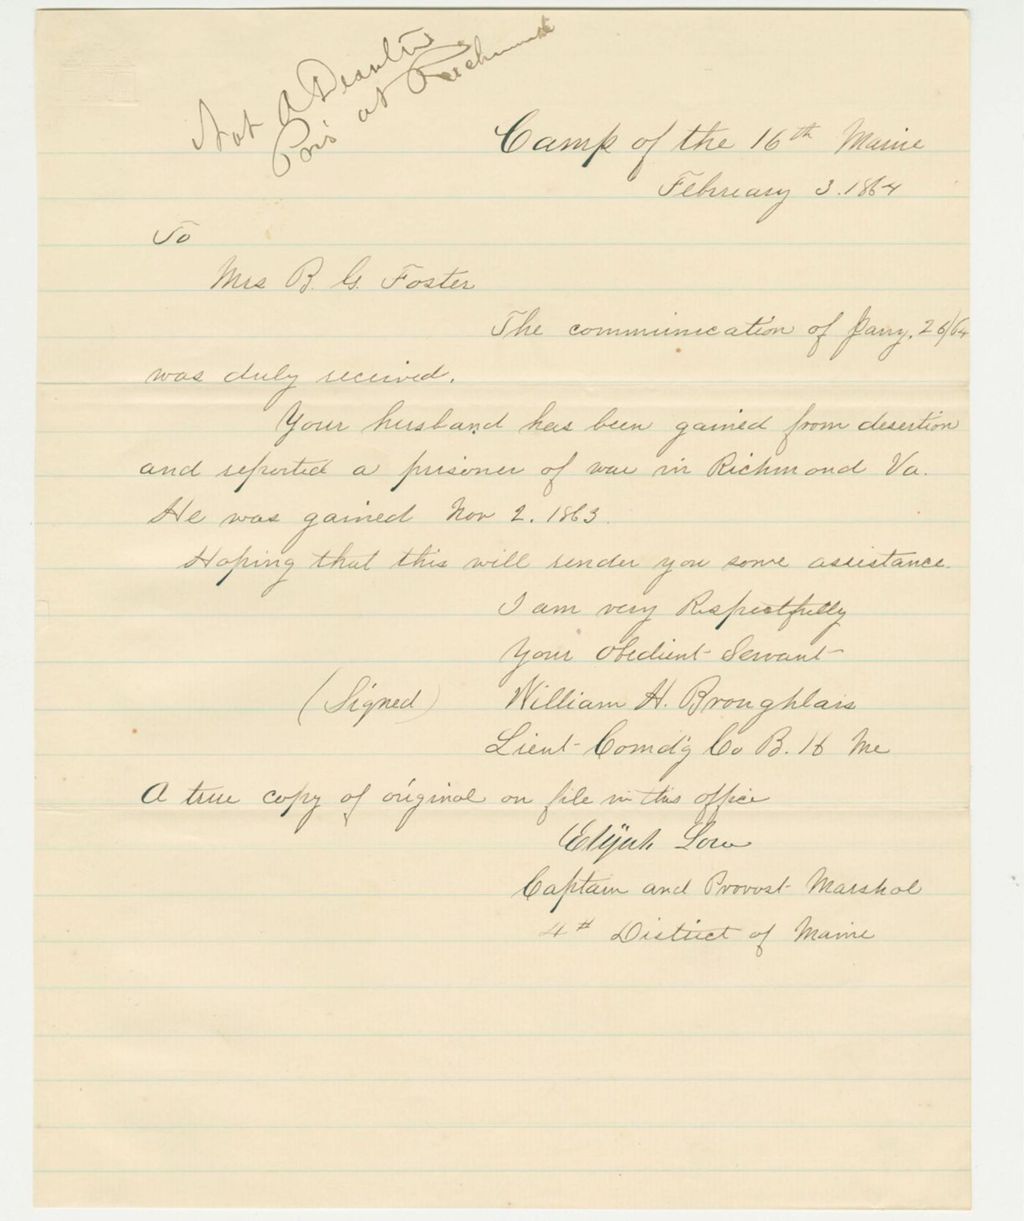 Not a Deserter
Pris at Richmond
Camp of the 16th Maine
February 3. 1864
To
Mrs B. G. Foster
The communication of Jany. 26/64
was duly received.
Your husband has been gained from desertion
and reported a prisoner of war in Richmond Va.
He was gained Nov 2. 1863.
Hoping that this will render you some assistance.
I am very Respectfully
Your Obedient Servant
(Signed) William H. Broughton
Lieut Comd'g Co B. 16 Me
A true copy of original on file in this office
Elijah Low
Captain and Provost Marshal
4th District of Maine